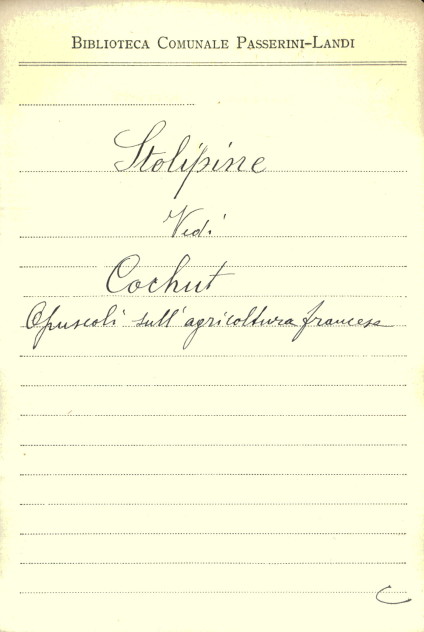 BIBLIOTECA COMUNALE PASSERINI-LANDI
Stolipine
Vedi
Cochut
Opuscoli sull'agricoltura francese
C